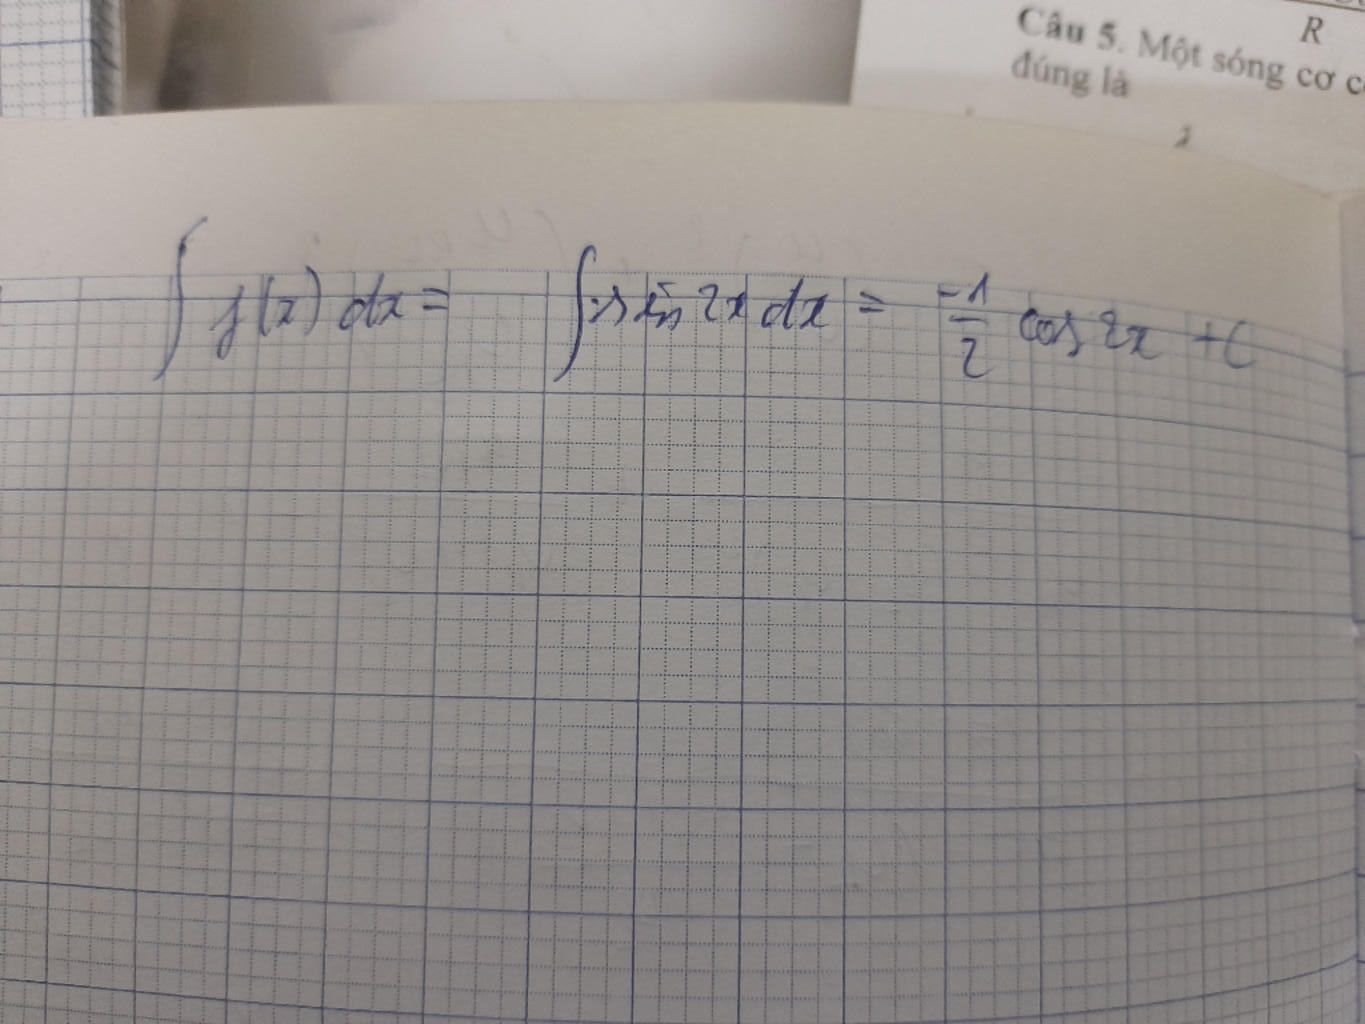 R
Câu 5. Một sóng cơ c
đúng là
∫ f(x) dx = ∫ sin 2x dx = -1/2 cos 2x + C